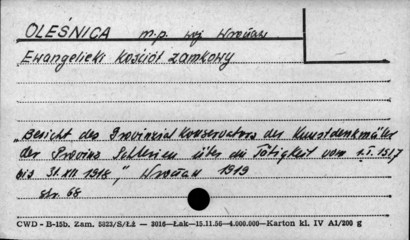 OLEŚNICA m.p. woj Wrocław
Ewangelicki kościół zamkowy
„Bericht des Provinzial Konservators der Kunstdenkmäler
der Provinz Schlesien über die Tätigkeit vom 1.I.1517
bis 31.XII 1918," Wrocław 1919
str. 68
CWD - B-15b. Zam. 5823/S/Łż — 3016—Łak—15.11.56—4.000.000—Karton kl. IV A1/200 g